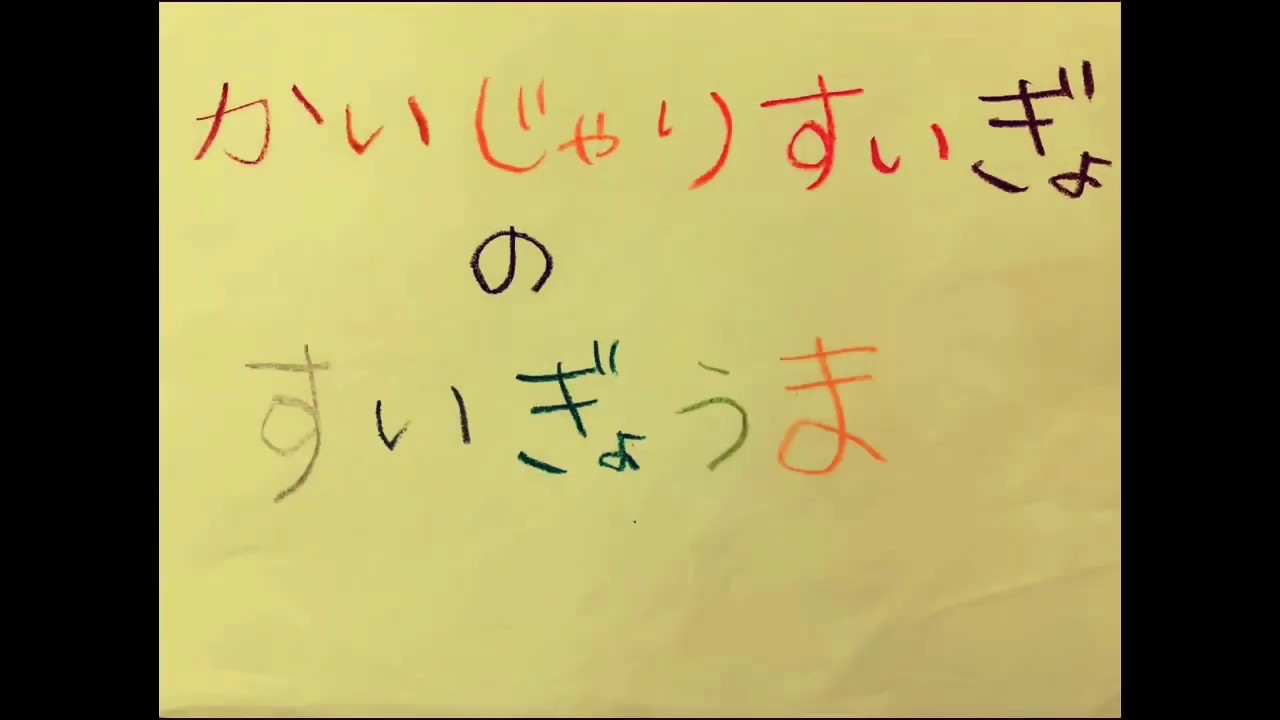 かいじゃりすいぎょ
の
すいぎょうま